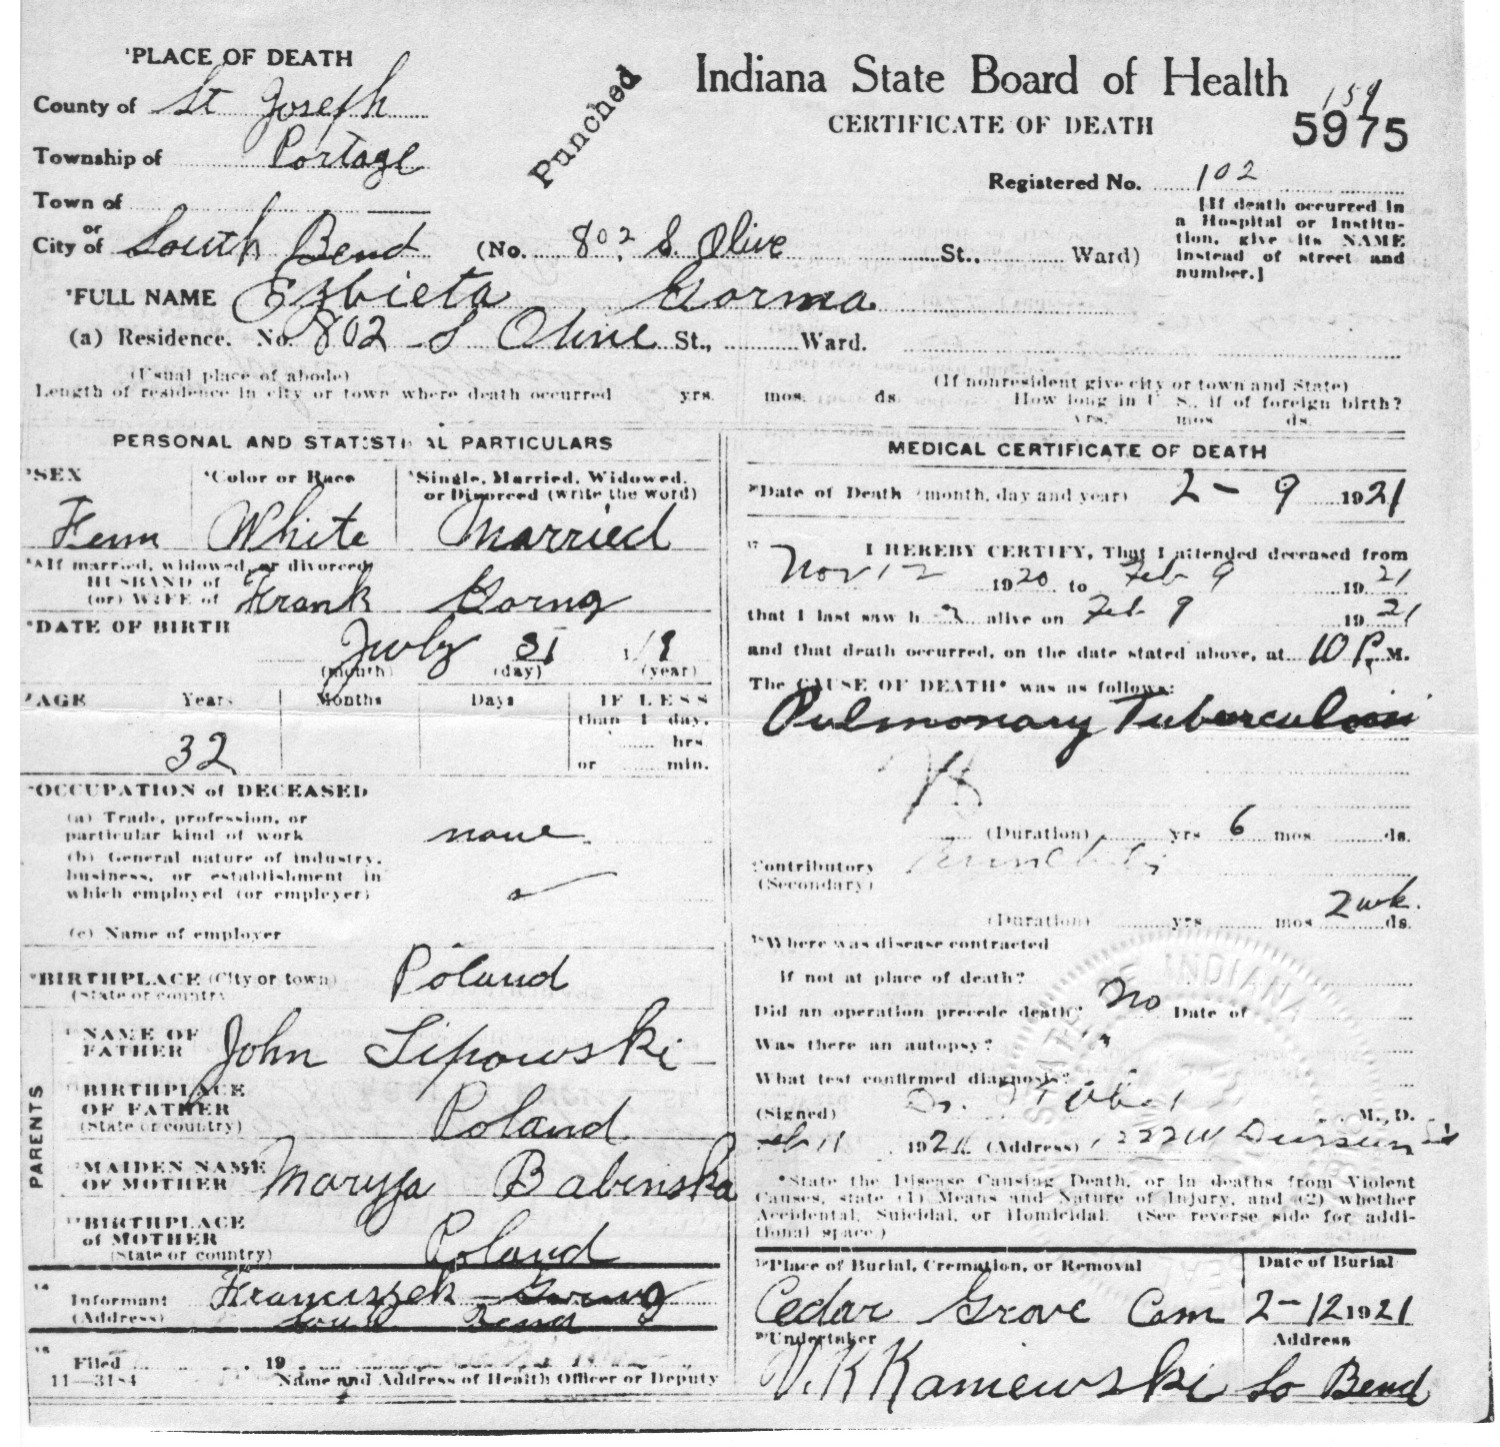 Indiana State Board of Health
CERTIFICATE OF DEATH
159
5975
Punched
¹PLACE OF DEATH
County of St Joseph
Township of Portage
Town of
or
City of South Bend (No. 802 S. Olive St., Ward)
Registered No. 102
[If death occurred in
a Hospital or Institu-
tion, give its NAME
instead of street and
number.]
²FULL NAME Elzbieta Gorma
(a) Residence. No. 802 S Olive St., Ward.
(Usual place of abode)
(If nonresident give city or town and State)
Length of residence in city or town where death occurred yrs. mos. ds.
How long in U. S., if of foreign birth?
yrs. mos. ds.
PERSONAL AND STATISTICAL PARTICULARS
³SEX
Fem
⁴Color or Race
White
⁵Single, Married, Widowed,
or Divorced (write the word)
Married
If married, widowed, or divorced
HUSBAND of
(or) WIFE of Frank
DATE OF BIRTH
July 31 1
(month) (day) (year)
⁷AGE Years Months Days IF LESS
than 1 day,
hrs
or min.
32
⁸OCCUPATION of DECEASED
(a) Trade, profession, or
particular kind of work none
(b) General nature of industry,
business, or establishment in
which employed (or employer)
(c) Name of employer
⁹BIRTHPLACE (City or town) Poland
(State or country)
PARENTS
NAME OF
FATHER John Lipowski
BIRTHPLACE
OF FATHER
(State or country) Poland
MAIDEN NAME
OF MOTHER Maryja Babinska
BIRTHPLACE
of MOTHER
(State or country) Poland
14
Informant Franciszek
(Address) South Bend
15
Filed 19
11-3184 Name and Address of Health Officer or Deputy
MEDICAL CERTIFICATE OF DEATH
Date of Death (month, day and year) 2-9 1921
17
I HEREBY CERTIFY, That I attended deceased from
Nov 12 1920 to Feb 9 1921
that I last saw h alive on Feb 9 1921
and that death occurred, on the date stated above, at 10 P. M.
The CAUSE OF DEATH* was as follows:
Pulmonary Tuberculosis
(Duration) yrs 6 mos ds.
Contributory
(Secondary)
2 wk.
(Duration) yrs mos ds.
Where was disease contracted
if not at place of death?
Did an operation precede death? no Date of
Was there an autopsy? "
What test confirmed diagnosis?
(Signed) Dr. M., D.
Feb 11 1921 (Address) 1222 W
*State the Disease Causing Death, or in deaths from Violent
Causes, state (1) Means and Nature of Injury, and (2) whether
Accidental, Suicidal, or Homicidal. (See reverse side for addi-
tional space.)
Place of Burial, Cremation, or Removal
Cedar Grove Cem
Date of Burial
2-12 1921
Undertaker
V. K Kaniewski
Address
So Bend
STATE OF INDIANA
SEAL